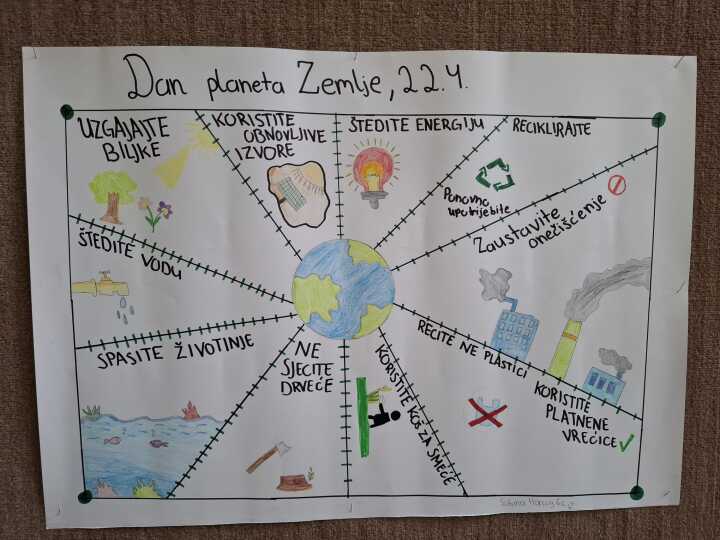 Dan planeta Zemlje, 22.4.
UZGAJAJTE
BILJKE
KORISTITE
OBNOVLJIVE
IZVORE
ŠTEDITE ENERGIJU
RECIKLIRAJTE
Ponovno
upotrijebite
Zaustavite
onečišćenje
ŠTEDITE VODU
SPASITE ŽIVOTINJE
NE
SJECITE
DRVEĆE
KORISTITE KOŠ ZA SMEĆE
RECITE NE PLASTICI
KORISTITE
PLATNENE
VREĆICE